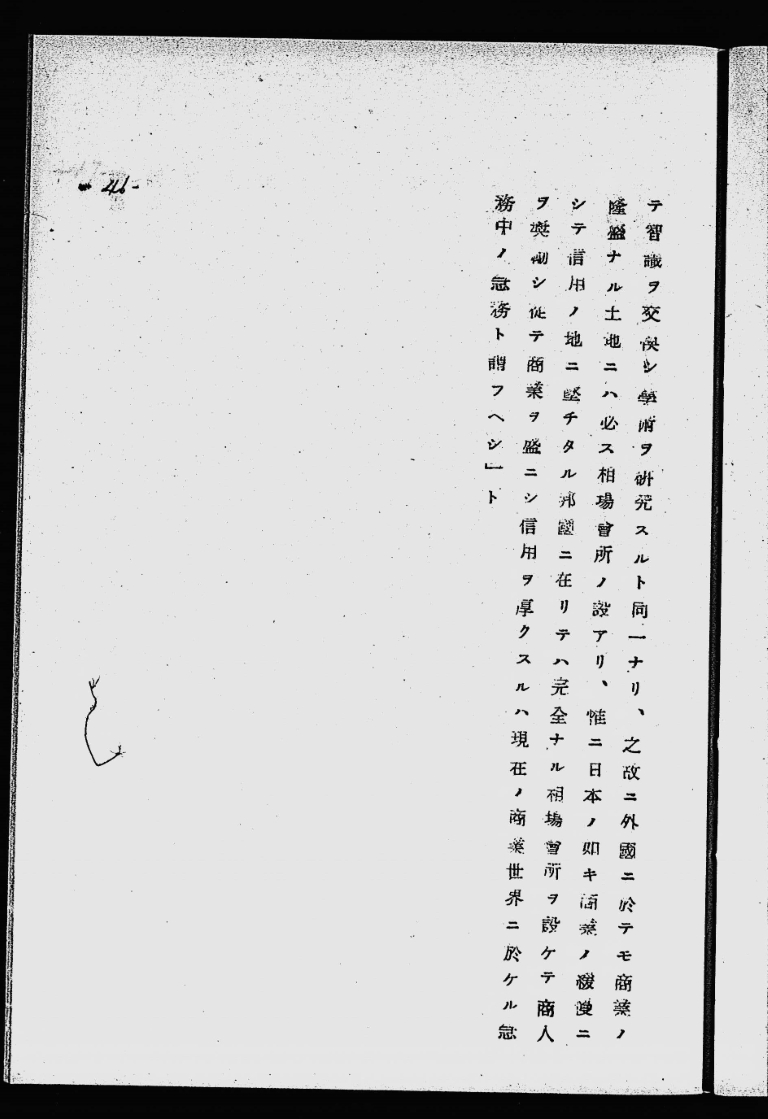 テ智識ヲ交換シ學術ヲ研究スルト同一ナリ、之故ニ外國ニ於テモ商業ノ
隆盛ナル土地ニハ必ス相場會所ノ設アリ、惟ニ日本ノ如キ商業ノ緩漫ニ
シテ信用ノ地ニ墜チタル邦國ニ在リテハ完全ナル相場會所ヲ設ケテ商人
ヲ奬勵シ從テ商業ヲ盛ニシ信用ヲ厚クスルハ現在ノ商業世界ニ於ケル急
務中ノ急務ト謂フヘシ」ト
-46-